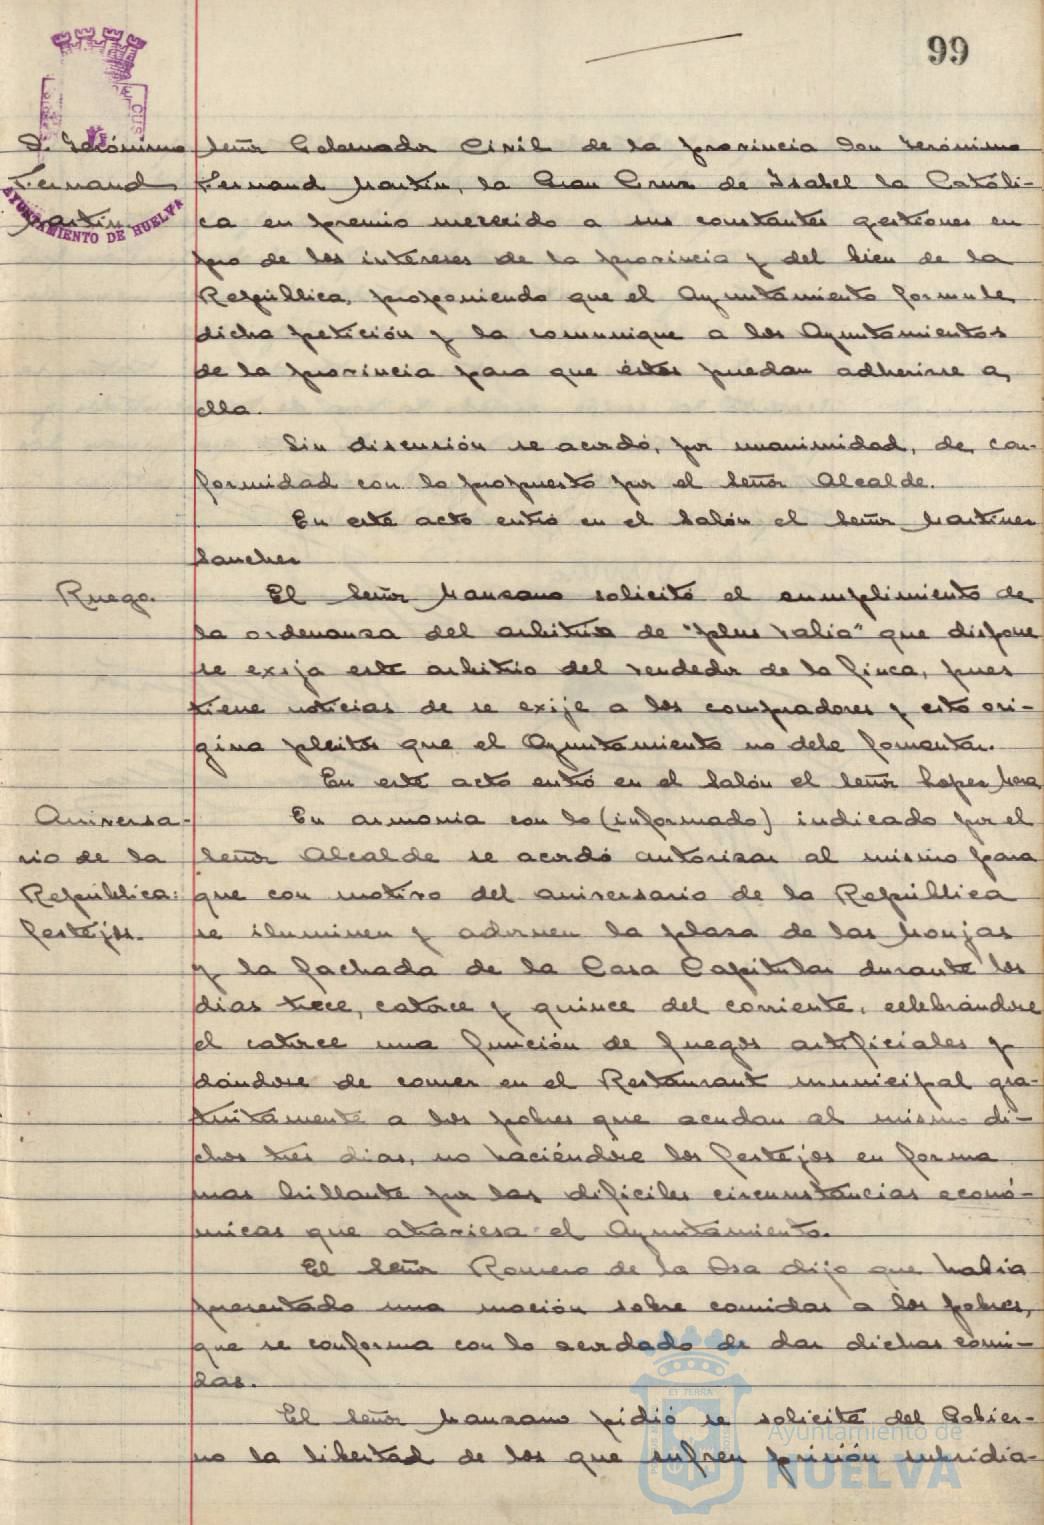 99
D. Gerónimo
Fernand
Martín.
AYUNTAMIENTO DE HUELVA
señor Gobernador Civil de la provincia Don Gerónimo
Fernand Martín, la Gran Cruz de Isabel la Católi-
ca en premio merecido a sus constantes gestiones en
pro de los intereses de la provincia y del bien de la
República, proponiendo que el Ayuntamiento formule
dicha petición y la comunique a los Ayuntamientos
de la provincia para que éstos puedan adherirse a
ella.
Sin discusión se acordó, por unanimidad, de con-
formidad con lo propuesto por el señor Alcalde.
En este acto entró en el salón el señor Martínez
Sanchez
Ruego.
El señor Manzano solicitó el cumplimiento de
la ordenanza del arbitrio de "plus valia" que dispone
se exija este arbitrio del vendedor de la finca, pues
tiene noticias de se exije a los compradores y esto ori-
gina pleitos que el Ayuntamiento no debe fomentar.
En este acto entró en el salón el señor Lopez Mera
Aniversa-
rio de la
República:
festejos.
En armonia con lo (informado) indicado por el
señor Alcalde se acordó autorizar al mismo para
que con motivo del aniversario de la República
se iluminen y adornen la plaza de las Monjas
y la fachada de la Casa Capitular durante los
dias trece, catorce y quince del corriente, celebrándose
el catorce una función de fuegos artificiales y
dándose de comer en el Restaurant municipal gra-
tuitamente a los pobres que acudan al mismo di-
chos tres dias, no haciéndose los festejos en forma
mas brillante por las dificiles circunstancias econó-
micas que atraviesa el Ayuntamiento.
El señor Romero de la Osa dijo que habia
presentado una moción sobre comidas a los pobres,
que se conforma con lo acordado de dar dichas comi-
das.
El señor Manzano pidió se solicite del Gobier-
no la libertad de los que sufren prisión subsidia-
Ayuntamiento de
HUELVA